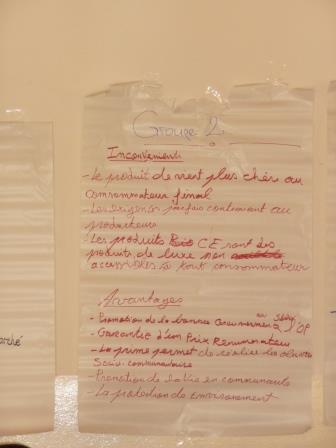 Groupe 2
Inconvenients
- Le produit devient plus chère au
consommateur final
- Les exigences parfois
producteurs
- Les produits Bio CE sont des
produits de luxe non
accessibles à tout consommateur
Avantages
- Promotion de la bonne Gouvernance à l'OP
- Garantie d'un Prix Remunerateur
- La prime permet de réaliser des œuvres
Socio. communautaire
- Promotion de la vie en communauté
- La protection de Environnement